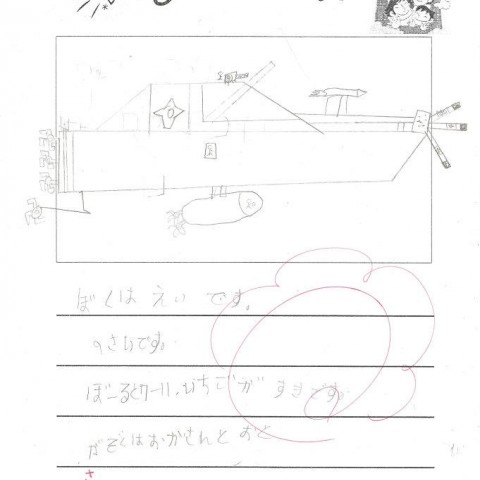 ぼくは えい です。
9さいです。
ぼーるとクール、いちごが すきです。
がぞくはおかさんと おと
さ